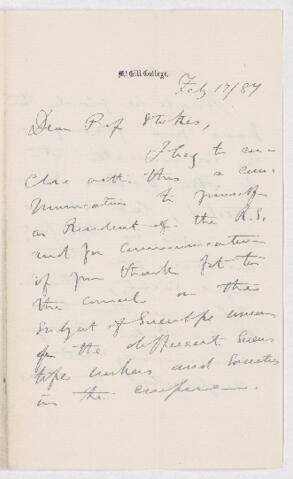 McGill College.
Feb 17/87
Dear Prof Stokes,
I beg to en
close with this a com
munication to yourself
as President of the R.S.
and for communication
if you think fit to
the council on the
subject of Scientific union
of the different Scien
tific workers and Societies
in the empire.